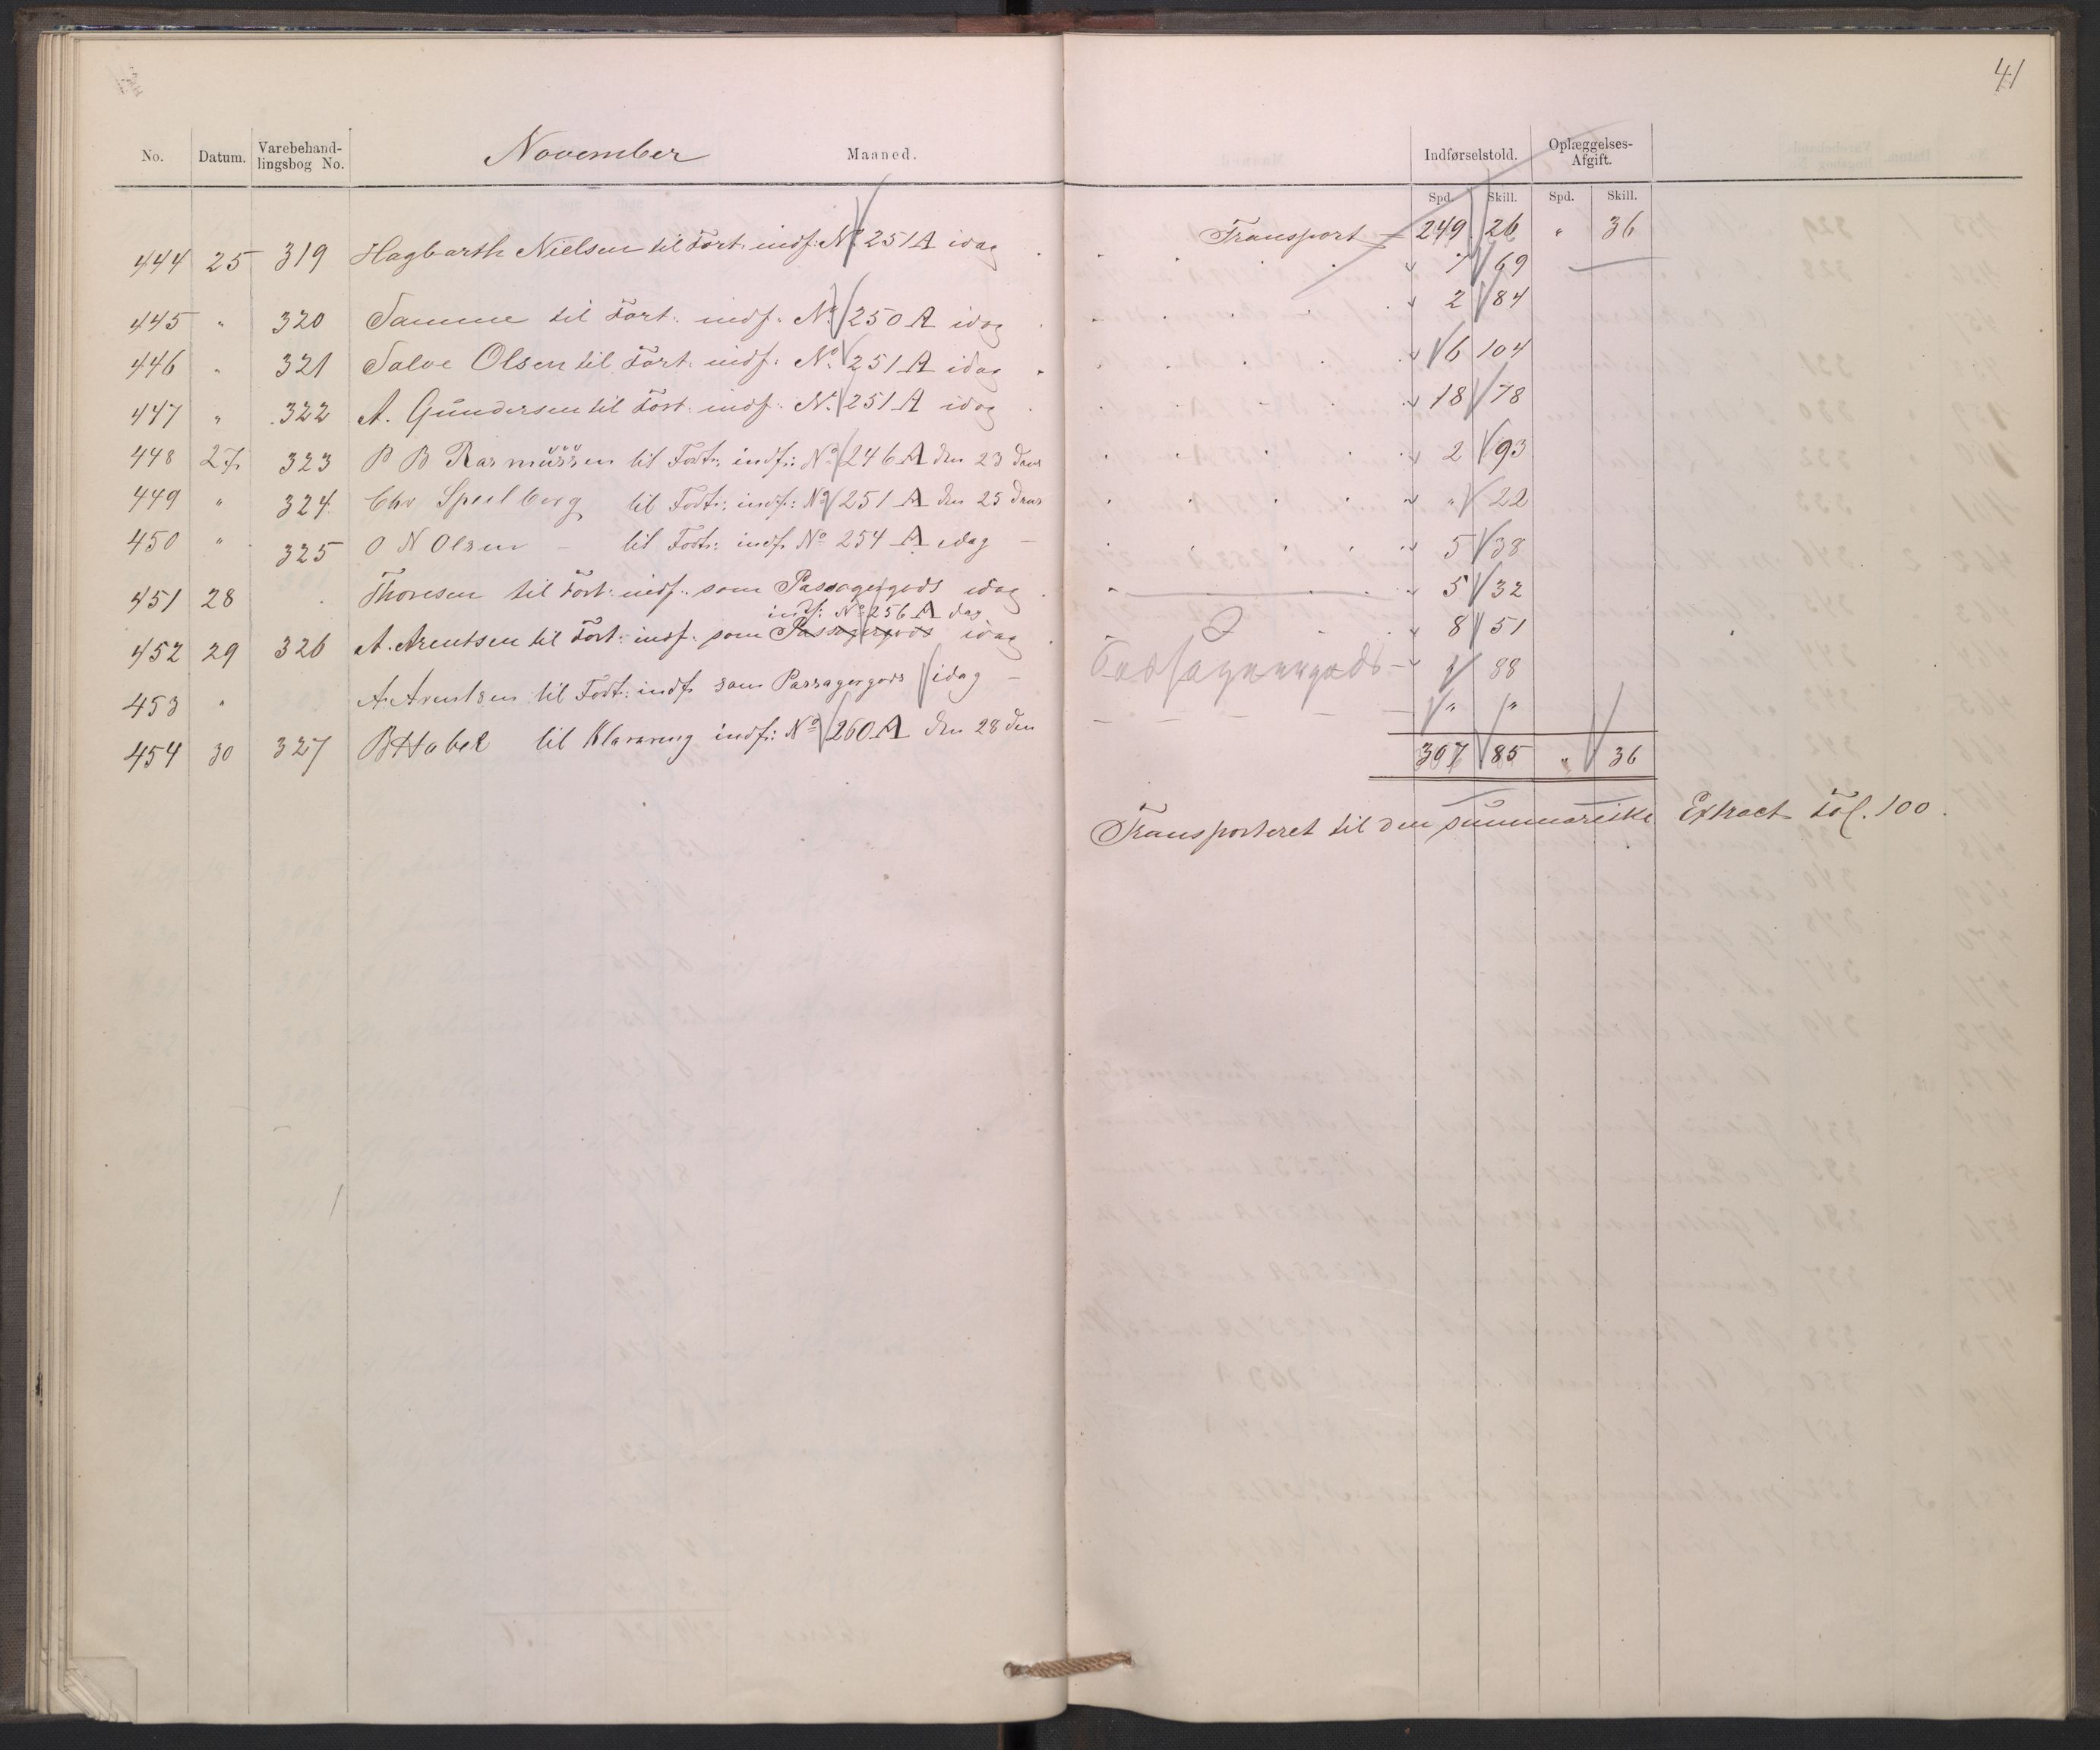 41
No. Datum. Varebehand-lingsbog No. November Maaned. Indførselstold. Oplæggelses-Afgift.
Spd. Skill. Spd. Skill.
Transport — 249 26 " 36
444 25 319 Hagbarth Nielsen til Fort. indf: No 251 A idag 7 69
445 " 320 Samme til Fort: indf. No 250 A idag 2 84
446 " 321 Salve Olsen til Fort: indf: No 251 A idag 6 104
447 " 322 A. Gundersen til Fort: indf. No 251 A idag 18 78
448 27 323 P B Rasmussen til Fort: indf: No 246 A den 23 dens 2 93
449 " 324 Chr Speilberg til Fort: indf: No 251 A den 25 dens " 22
450 " 325 O N Olsen — til Fort: indf. No 254 A idag — 5 38
451 28 Thoresen til Fort: indf. som Passagergods idag 5 32
indf: No 256 A dag
452 29 326 A. Arentsen til Fort: indf. som Passagergods idag 8 51
453 " A. Arentsen til Fort: indf. som Passagergods idag — Passagergods — 88
454 30 327 B Habel til Klarering indf: No 260 A den 28 den " "
307 85 " 36
Transporteret til den summariske Extract Fol. 100.